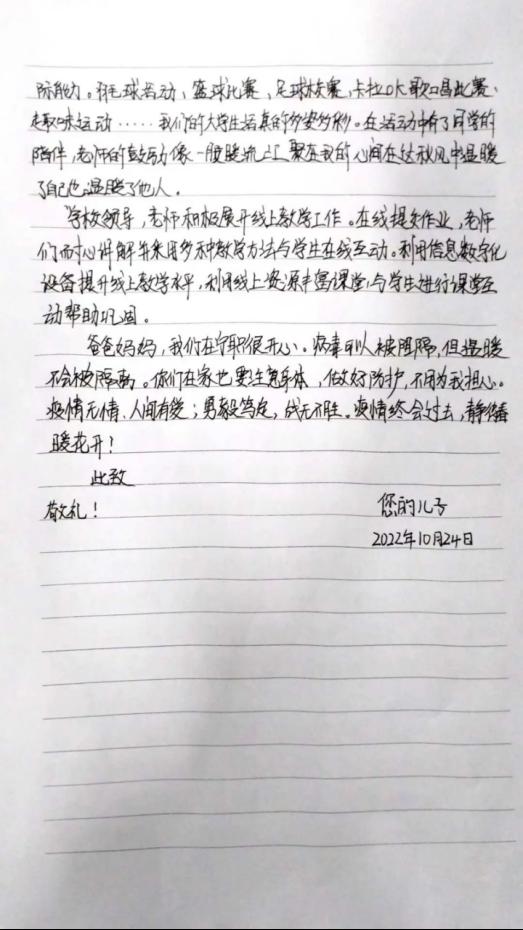 际能力。排毛球活动、篮球比赛、足球比赛、卡拉OK歌唱比赛、
趣味运动……我们的大学生活真的多姿多彩。在活动中有了同学的
陪伴,老师的鼓励像一股暖流汇聚在我的心间在这秋风中温暖
了自己也温暖了他人。
学校领导,老师积极展开线上教学工作。在线提交作业,老师
们耐心讲解并采用多种教学方法与学生在线互动。利用信息数字化
设备提升线上教学水平,利用线上资源丰富课堂,与学生进行课堂互
动帮助巩固。
爸爸妈妈,我们在宁职很开心。病毒可以被阻隔,但温暖
不会被隔离。你们在家也要注意身体,做好防护,不用为我担心。
疫情无情、人间有爱;勇毅笃定,战无不胜。疫情终会过去,静待春
暖花开!
此致
敬礼!
您的儿子
2022年10月24日